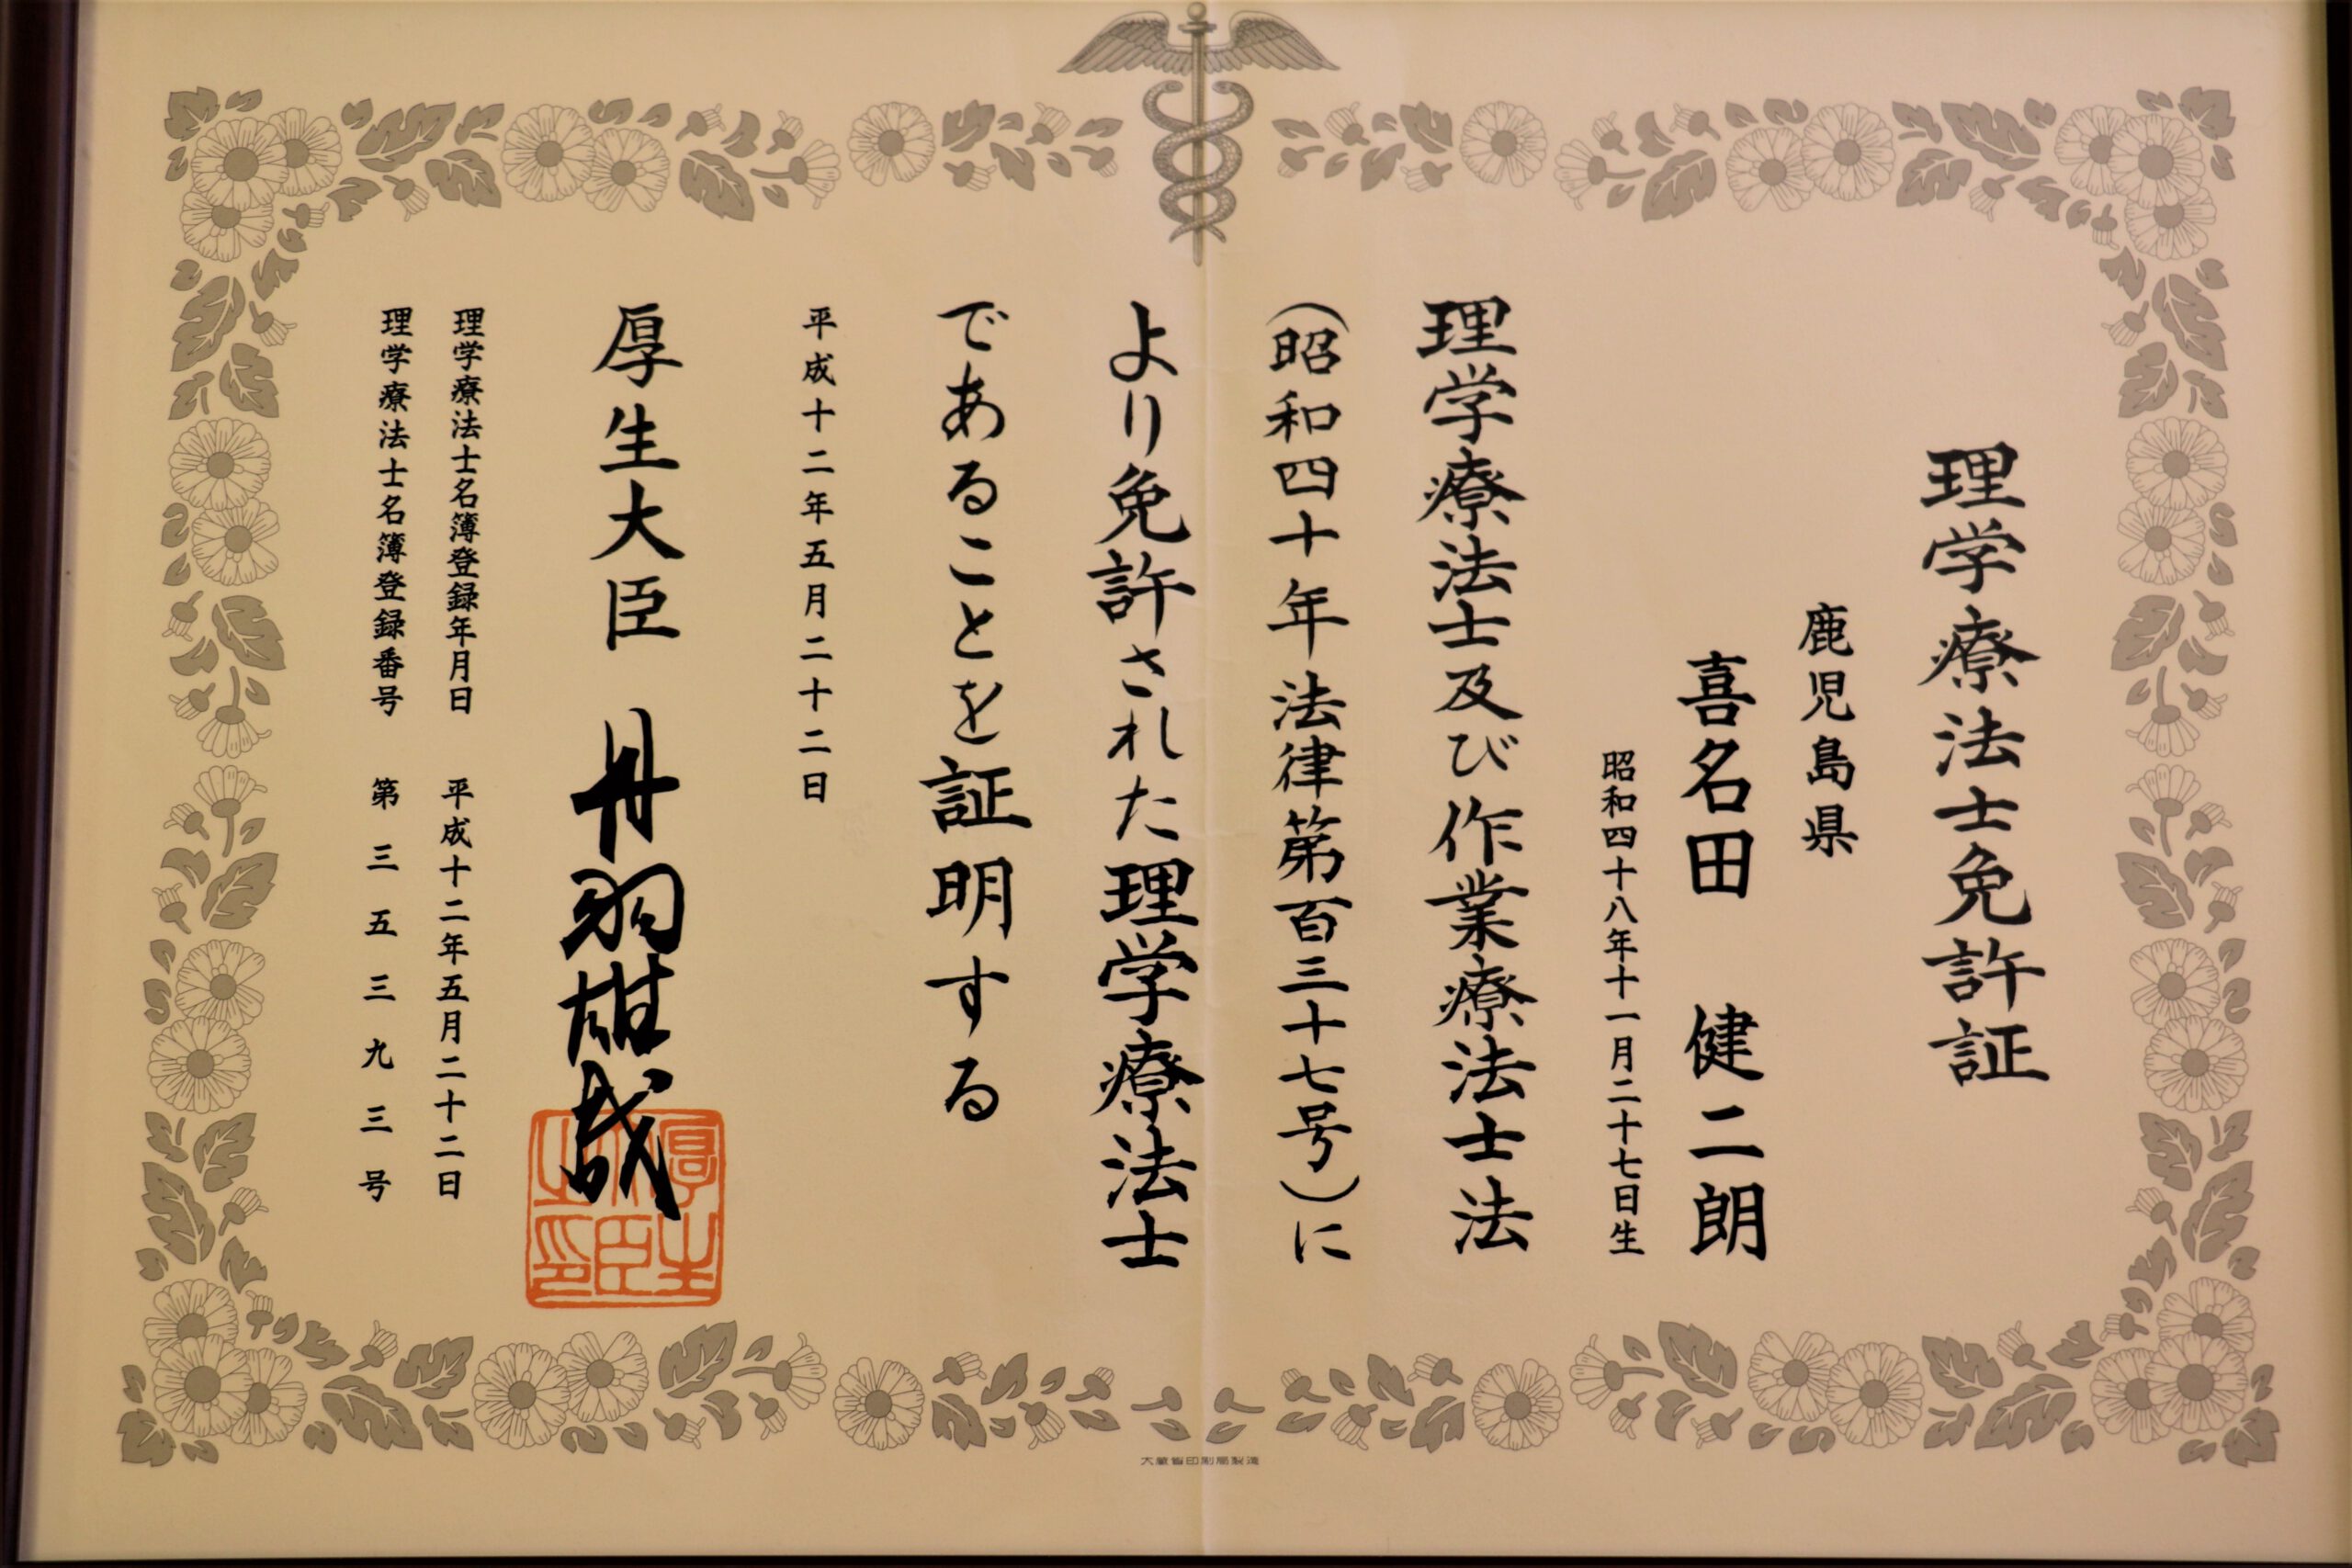 理学療法士免許証
鹿児島県
喜名田 健二朗
昭和四十八年十一月二十七日生
理学療法士及び作業療法士法
(昭和四十年法律第百三十七号)に
より免許された理学療法士
であることを証明する
平成十二年五月二十二日
厚生大臣 丹羽雄哉
厚生大臣之印
理学療法士名簿登録年月日 平成十二年五月二十二日
理学療法士名簿登録番号 第三五三九三号
大蔵省印刷局製造